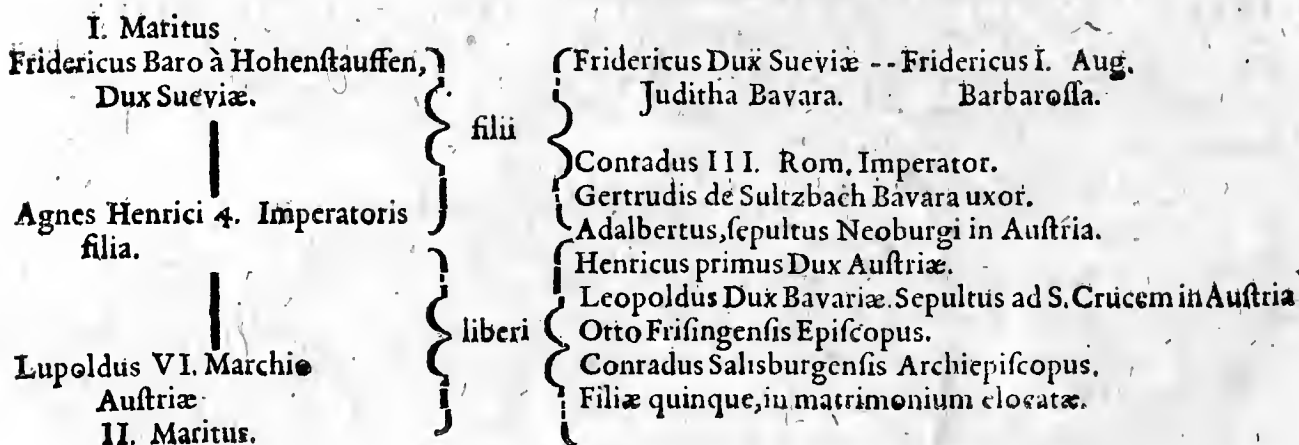 I. Maritus
Fridericus Baro à Hohenſtauffen,
Dux Sueviæ.
Agnes Henrici 4. Imperatoris
filia.
Lupoldus VI. Marchio
Auſtriæ
II. Maritus.
filii
Fridericus Dux Sueviæ -- Fridericus I. Aug.
Juditha Bavara. Barbaroſſa.
Conradus III. Rom. Imperator.
Gertrudis de Sultzbach Bavara uxor.
Adalbertus, ſepultus Neoburgi in Auſtria.
liberi
Henricus primus Dux Auſtriæ.
Leopoldus Dux Bavariæ. Sepultus ad S. Crucem in Auſtria
Otto Friſingenſis Epiſcopus.
Conradus Salisburgenſis Archiepiſcopus.
Filiæ quinque, in matrimonium elocatæ.